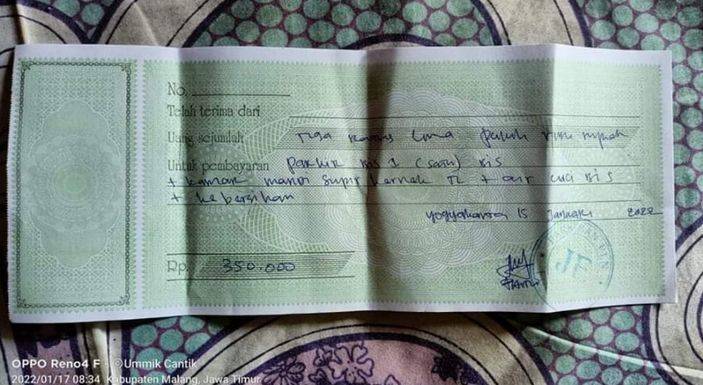 No.
Telah terima dari
Uang sejumlah Tiga Ratus Lima puluh ribu rupiah
Untuk pembayaran parkir bis 1 (satu) bis
+ kamar mandi supir kernek TL + air cuci bis
+ kebersihan
Yogyakarta 15 Januari 2022
Rp. 350.000
JF
OPPO Reno4 F ©Ummik Cantik
2022/01/17 08:34 Kabupaten Malang, Jawa Timur